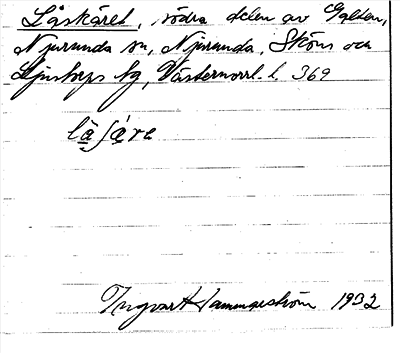 Låskäret, södra delen av Galten,
Njurunda sn, Njurunda, Sköns och
Ljustorps tg, Västernorrl. l. 369
låʃäre
Ingvar Hammarström 1932